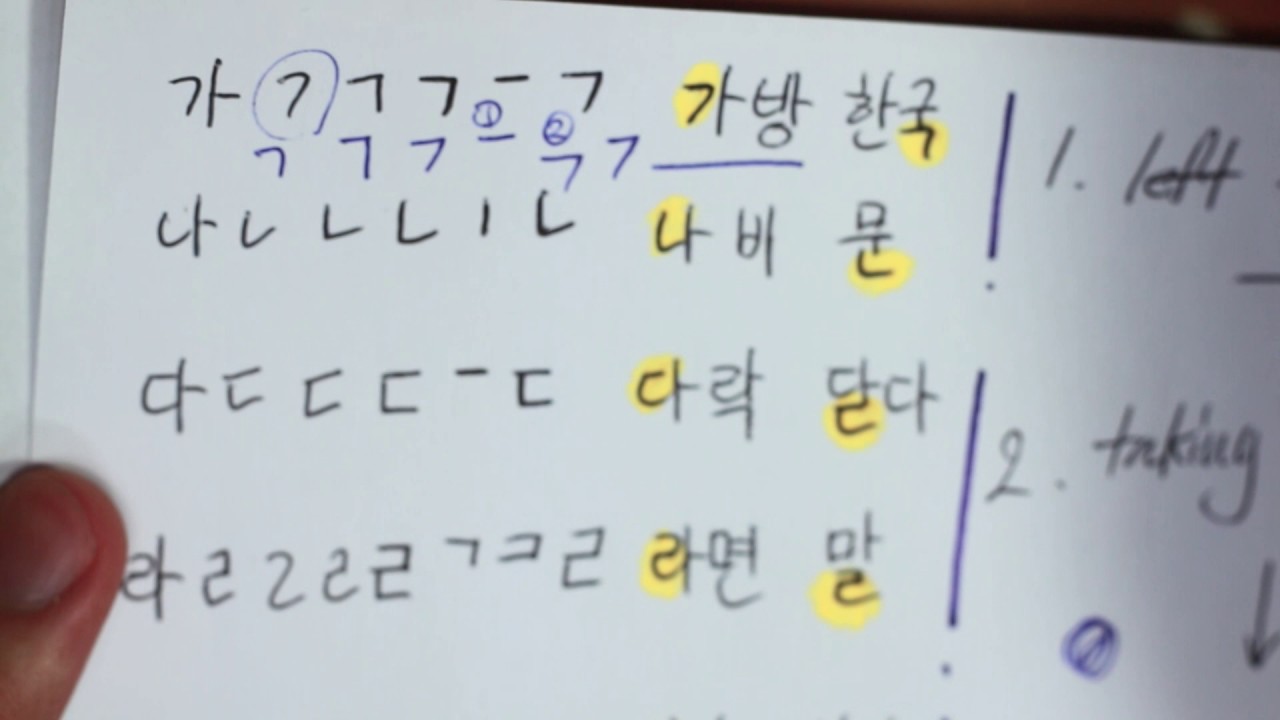 가 ㄱ ㄱ ㄱ ㅡ ㄱ 가방 한국
ㄱ ㄱ ㄱ ① ㅡ ② ㄱ ㄱ
나 ㄴ ㄴ ㄴ ㅣ ㄴ 나비 문
1. left
다 ㄷ ㄷ ㄷ ㅡ ㄷ 다락 닫다
2. taking
라 ㄹ ㄹ ㄹ ㄹ ㄱ ㅋ ㄹ 라면 말